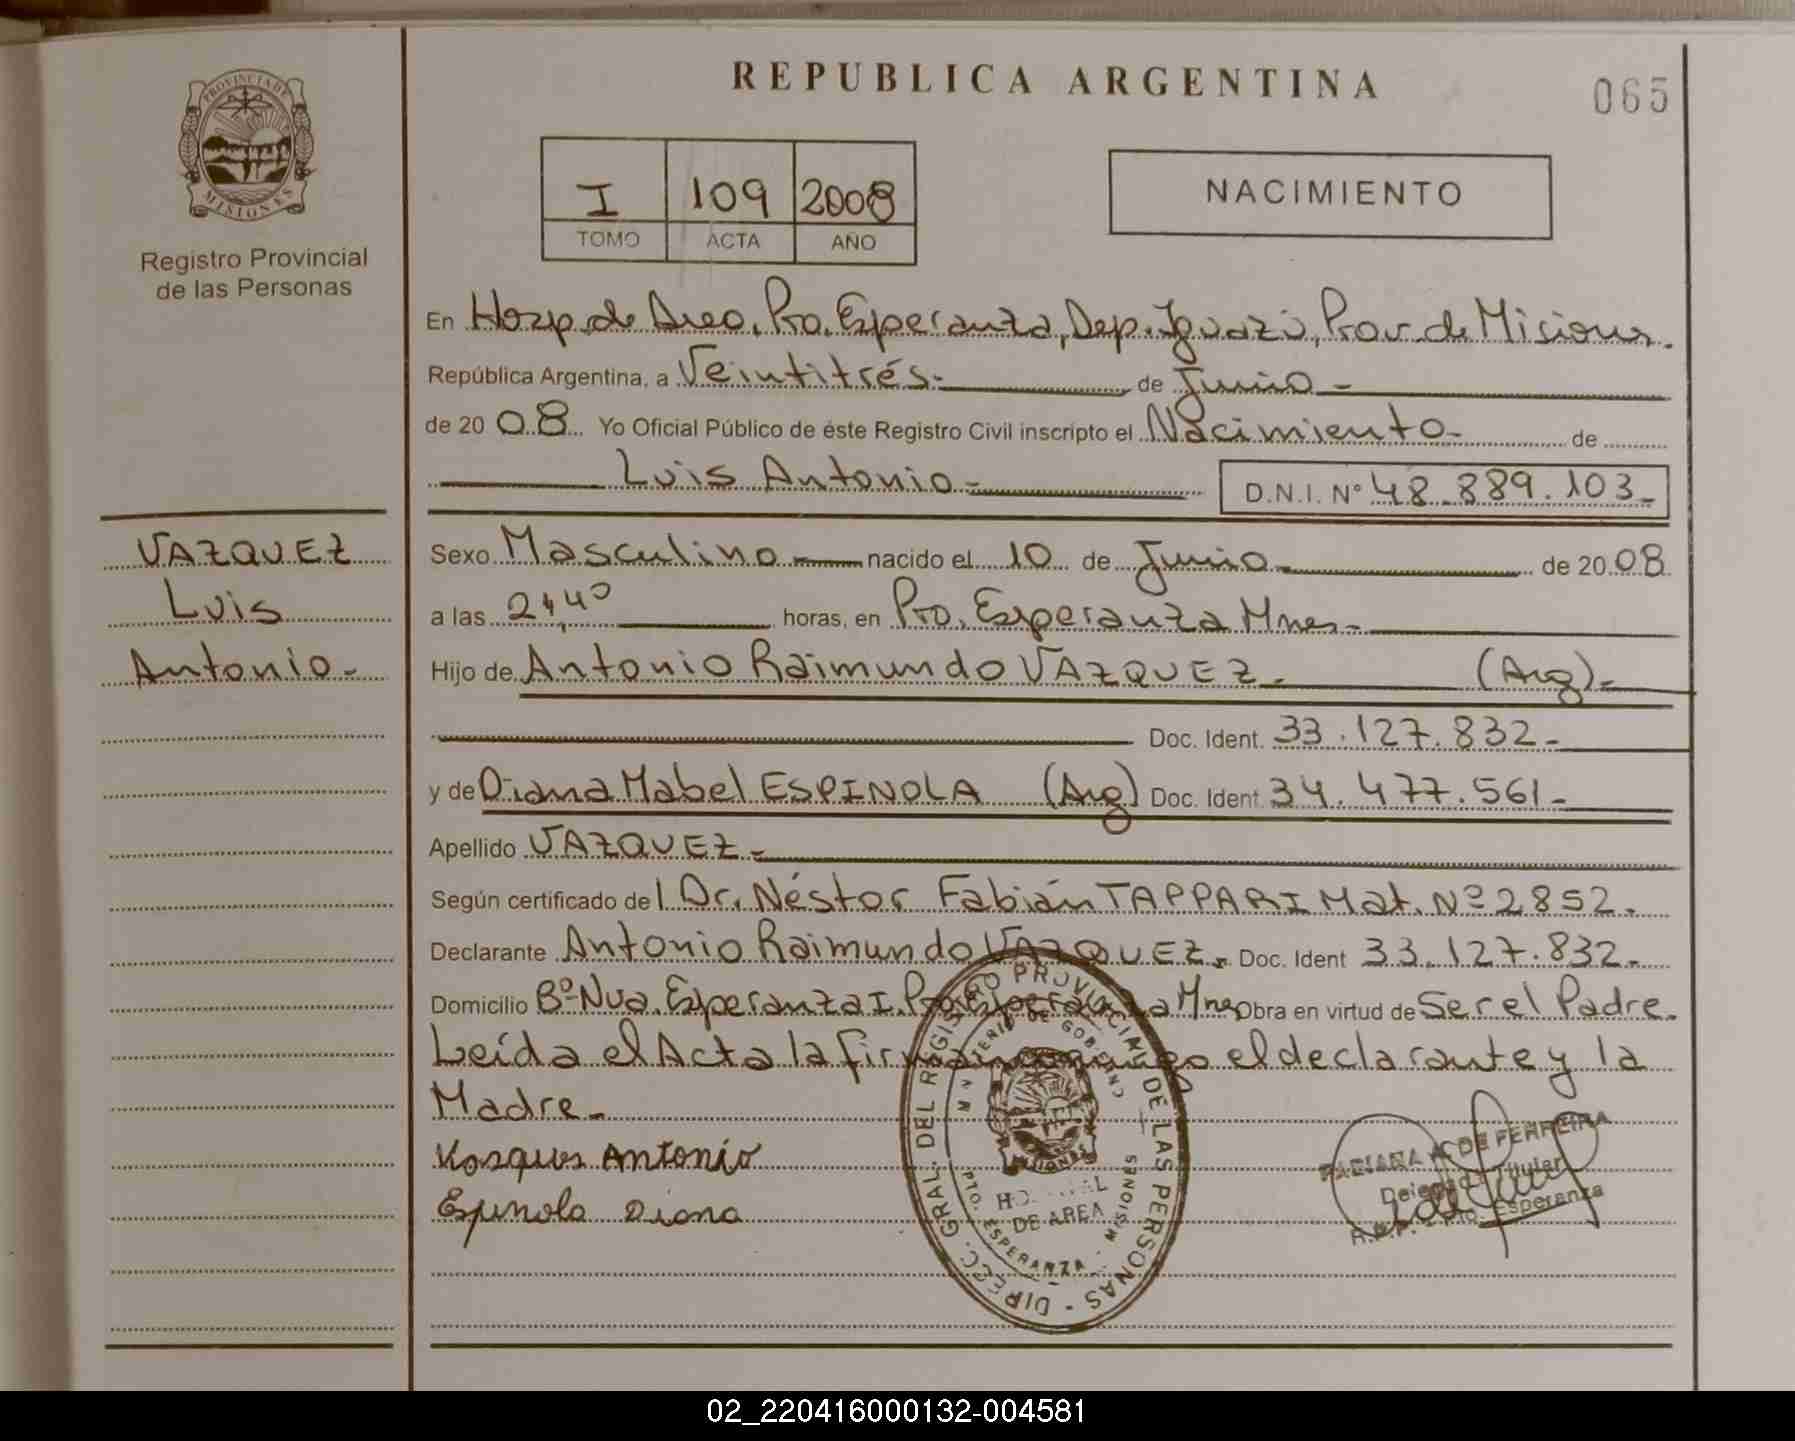 REPUBLICA ARGENTINA
065
PROVINCIA DE
MISIONES
Registro Provincial
de las Personas
I 109 2008
TOMO ACTA AÑO
NACIMIENTO
En Hosp. de Area, Pto. Esperanza, Dep. Iguazú, Prov. de Misiones.
República Argentina, a Veintitrés.- de Junio -
de 20 08 Yo Oficial Público de éste Registro Civil inscripto el Nacimiento- de
Luis Antonio- D.N.I. Nº 48.889.103-
VAZQUEZ
Luis
Antonio-
Sexo Masculino - nacido el 10 de Junio- de 20 08
a las 21,40 horas, en Pto. Esperanza Mnes-
Hijo de Antonio Raimundo VAZQUEZ.- (Arg)-
Doc. Ident. 33.127.832-
y de Diana Mabel ESPINOLA (Arg) Doc. Ident. 34.477.561-
Apellido VAZQUEZ-
Según certificado del Dr. Néstor Fabián TAPPARI Mat. Nº 2852.
Declarante Antonio Raimundo VAZQUEZ. Doc. Ident 33.127.832-
Domicilio Bº Nva. Esperanza I. Pto. Esperanza Mnes Obra en virtud de Ser el Padre.
Leída el Acta la firman conmigo el declarante y la
Madre-
Vasques Antonio
Espinola Diana
DIRECC. GRAL. DEL REGISTRO PROVINCIAL DE LAS PERSONAS -
MINISTERIO DE GOBIERNO
MISIONES
HOSPITAL
DE AREA
PTO. ESPERANZA - MISIONES
FABIANA DE FERREIRA
Delegada Titular
R.P.P. Pto. Esperanza
02_220416000132-004581